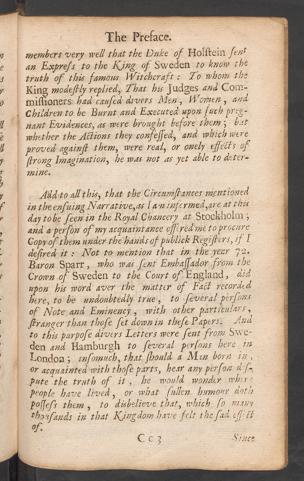 The Preface.
members very well that the Duke of Holstein sent
an Express to the King of Sweden to know the
truth of this famous Witchcraft: To whom the
King modestly replied, That his Judges and Com-
missioners had caused divers Men, Women, and
Children to be Burnt and Executed upon such preg-
nant Evidences, as were brought before them; but
whether the Actions they confessed, and which were
proved against them, were real, or onely effects of
strong Imagination, he was not as yet able to deter-
mine.
Add to all this, that the Circumstances mentioned
in the ensuing Narrative, as I am informed, are at this
day to be seen in the Royal Chancery at Stockholm;
and a person of my acquaintance offired me to procure
Copy of them under the hands of publick Registers, if I
desired it: Not to mention that in the year 72.
Baron Sparr, who was sent Embassador from the
Crown of Sweden to the Court of England, did
upon his word aver the matter of Fact recorded
here, to be undoubtedly true, to several persons
of Note and Eminency, with other particulars,
stranger than those set down in these Papers. And
to this purpose divers Letters were sent from Swe-
den and Hamburgh to several persons here in
London; insomuch, that should a Man born in,
or acquainted with those parts, hear any person dis-
pute the truth of it, he would wonder where
people have lived, or what sullen humour doth
possess them, to disbelieve that, which so many
thousands in that Kingdom have felt the sad effect
of.
C c 3 Since